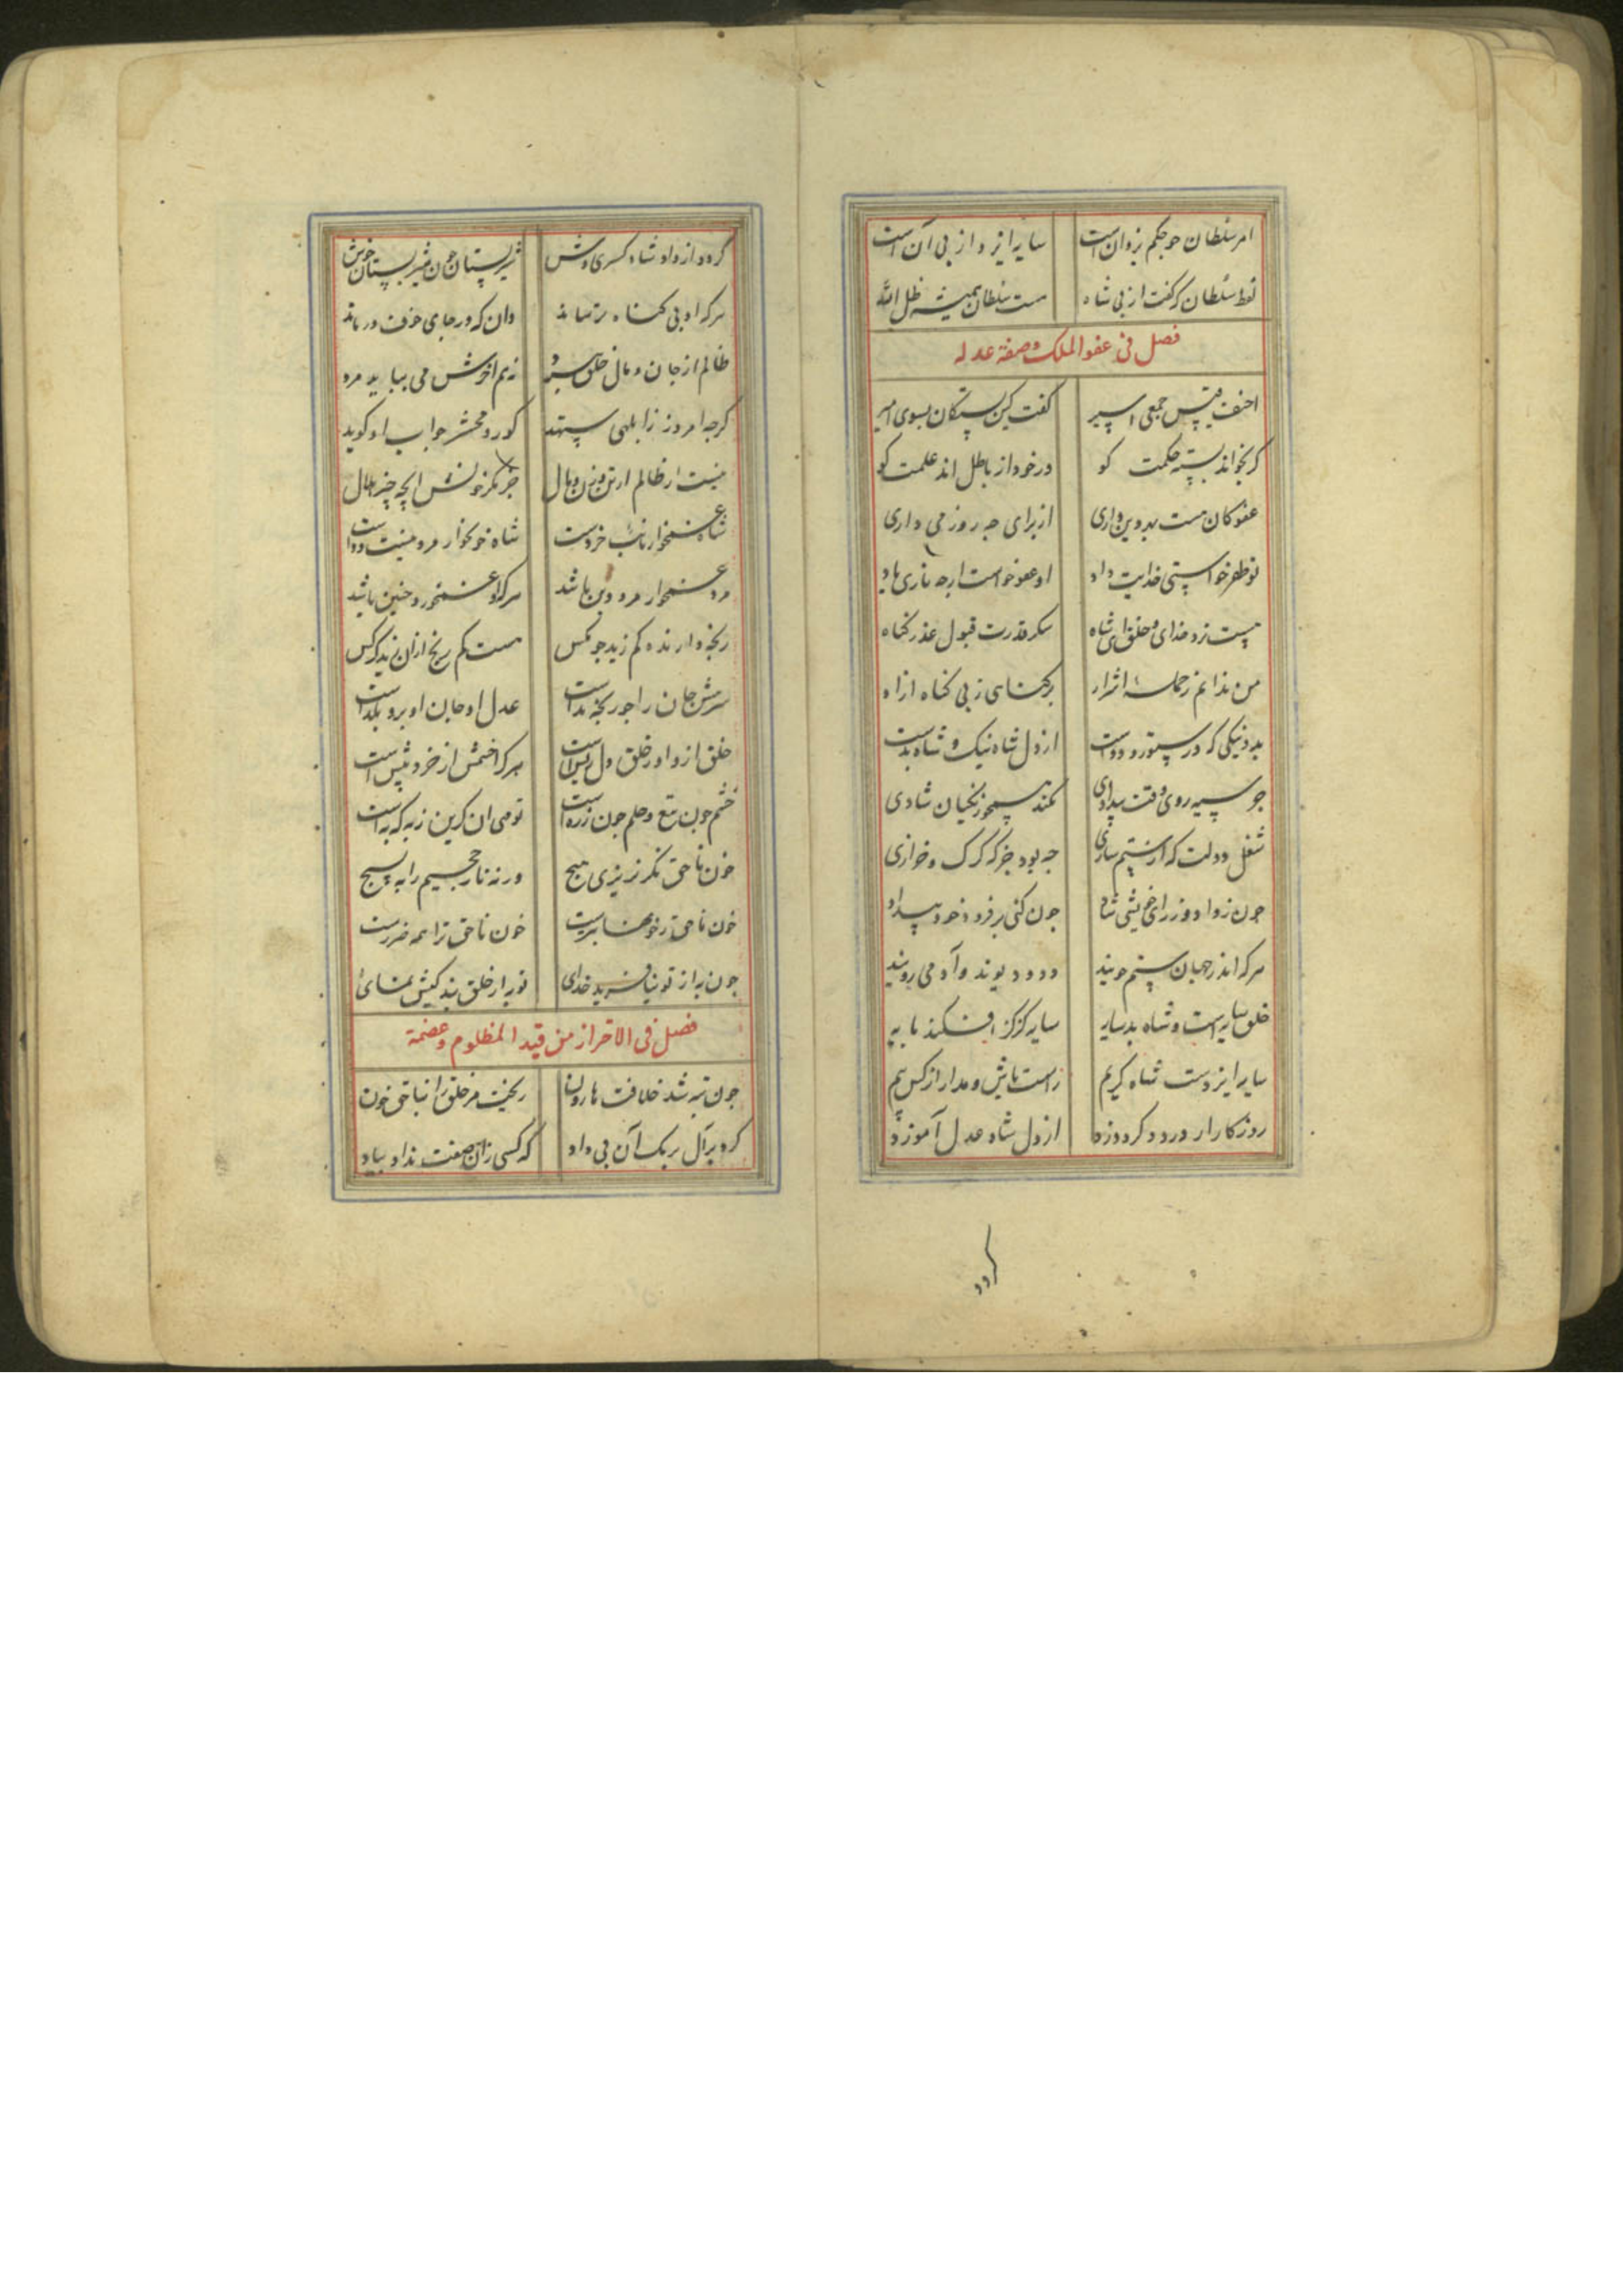 امر سلطان چو حکم یزدان است سایه ایزد از پی آن است
لفظ سلطان که گفت از پی شاه هست سلطان همیشه ظل الله
فصل فی عفو الملک وصفة عدله
احنف قیس جمعی اسیر گفت کین بستگان بسوی امیر
کر بخواند بسته حکمت کو در خود از باطل اند علمت کو
عفو کان هست بهر دین داری از برای چه روز می داری
تو ظفر خواستی خدایت داد او عفو خواست ارچه
نیست نزد خدای و خلق ای شاه شکر قدرت قبول عذر گناه
من ندانم ز جمله اشرار بر گناهی ز بی گناه ازار
بد و نیکی که در ستور و ددست از دل شاه نیک و شاه بدست
جز سیه روی وقت بیدادی نکند همچو زنگیان شادی
شغل دولت که از ستم سازی چه بود جز که کرک و خرازی
چون تو از داد روز خویشی شاد چون کنی بر فرود خود بیداد
هرکه اندر جهان ستم جویند دد و دیوند و آدمی رویند
خلق سایه است و شاه بد سایه سایه کژ کژ افکند مایه
سایه ایزدست شاه کریم راست باش و مدار از کس بیم
روزکار ار درود کر دوزد از دل شاه عدل آموزد
کردد
کردد از داد شاه کسری وش شیر پستان چون شیر بستان خوش
هرکه او بی گناه ترساند دان که در جای خوف درماند
ظالم از جان و مال خلق سترد نه هم اخرش می بباید مرد
کرچه امروز ز ابلهی ستهد کو رو محشر جواب او کوید
نیست از ظالم از تن و زن و مال جز مکر خونش ایچ چیز حلال
شاه غمخوار نائب خردست شاه خونخوار مرد نیست ددست
مرد غمخوار مرد دین باشد هرکه او غم خورد چنین باشد
رنجه دارنده کم زید چو مکس هست کم رنج ازان زید کرکس
سرمش جان را چو رنجه بداست عدل او جان او برو بلداست
خلق ازو او ز خلق دل ریش است هرکرا خشمش از خرد بیش است
خشم چون تیغ و حلم چون زره است تو می ان کزین زره که به است
خون ناحق نکر نریزی هیچ ورنه نار جحیم را به بسیج
خون ناحق ز خونبها بترست خون ناحق ترا همه ضررست
چون به از تو نیافرید خدای تو به از خلق بندکیش نمای
فصل فی الاحراز من قید المظلوم وعضمة
چون تبه شد خلافت هارون ریخت مر خلق را بناحق خون
کرد بر آل برمک آن بی داد که کسی زان صفت ندارد یاد